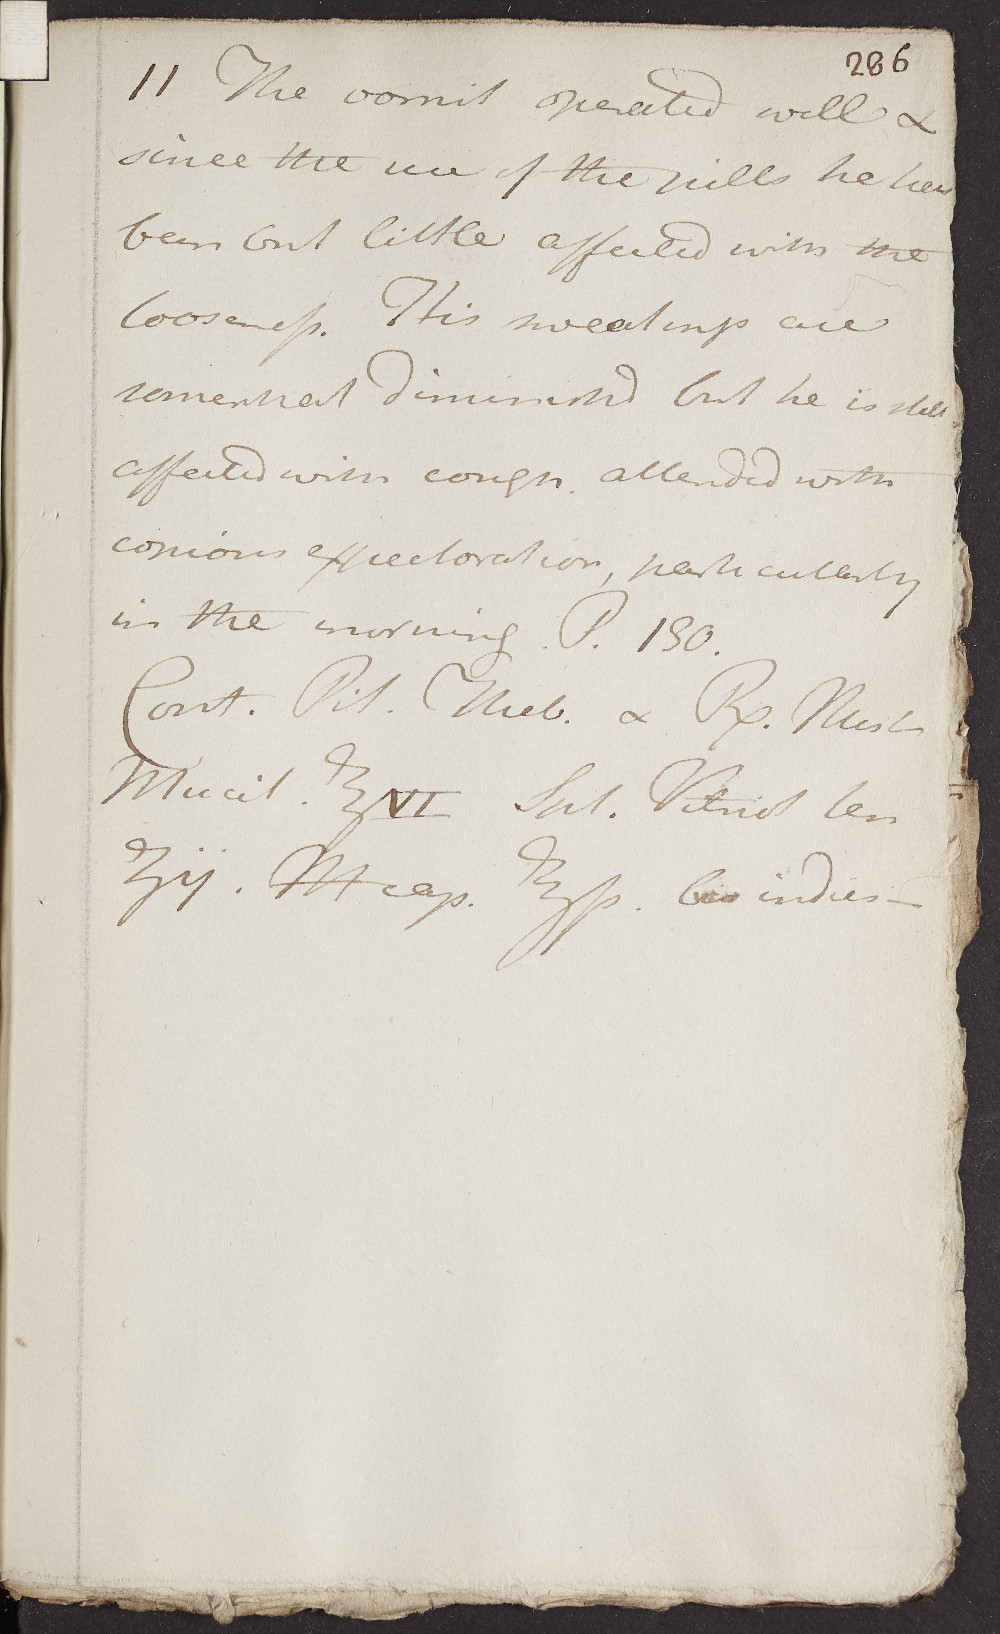 286
11 The vomit operated well &
since the use of the pills he has
been but little affected with the
looseness. His sweatings are
somewhat diminishd but he is still
affected with cough attended with
copious expectoration, particularly
in the morning. P. 130.
Cont. Pil. Theb. & Rx. Mist.
Mucil. ℥VI Spt. Vitriol ten
ʒij. M cap. ℥ß. bis indies